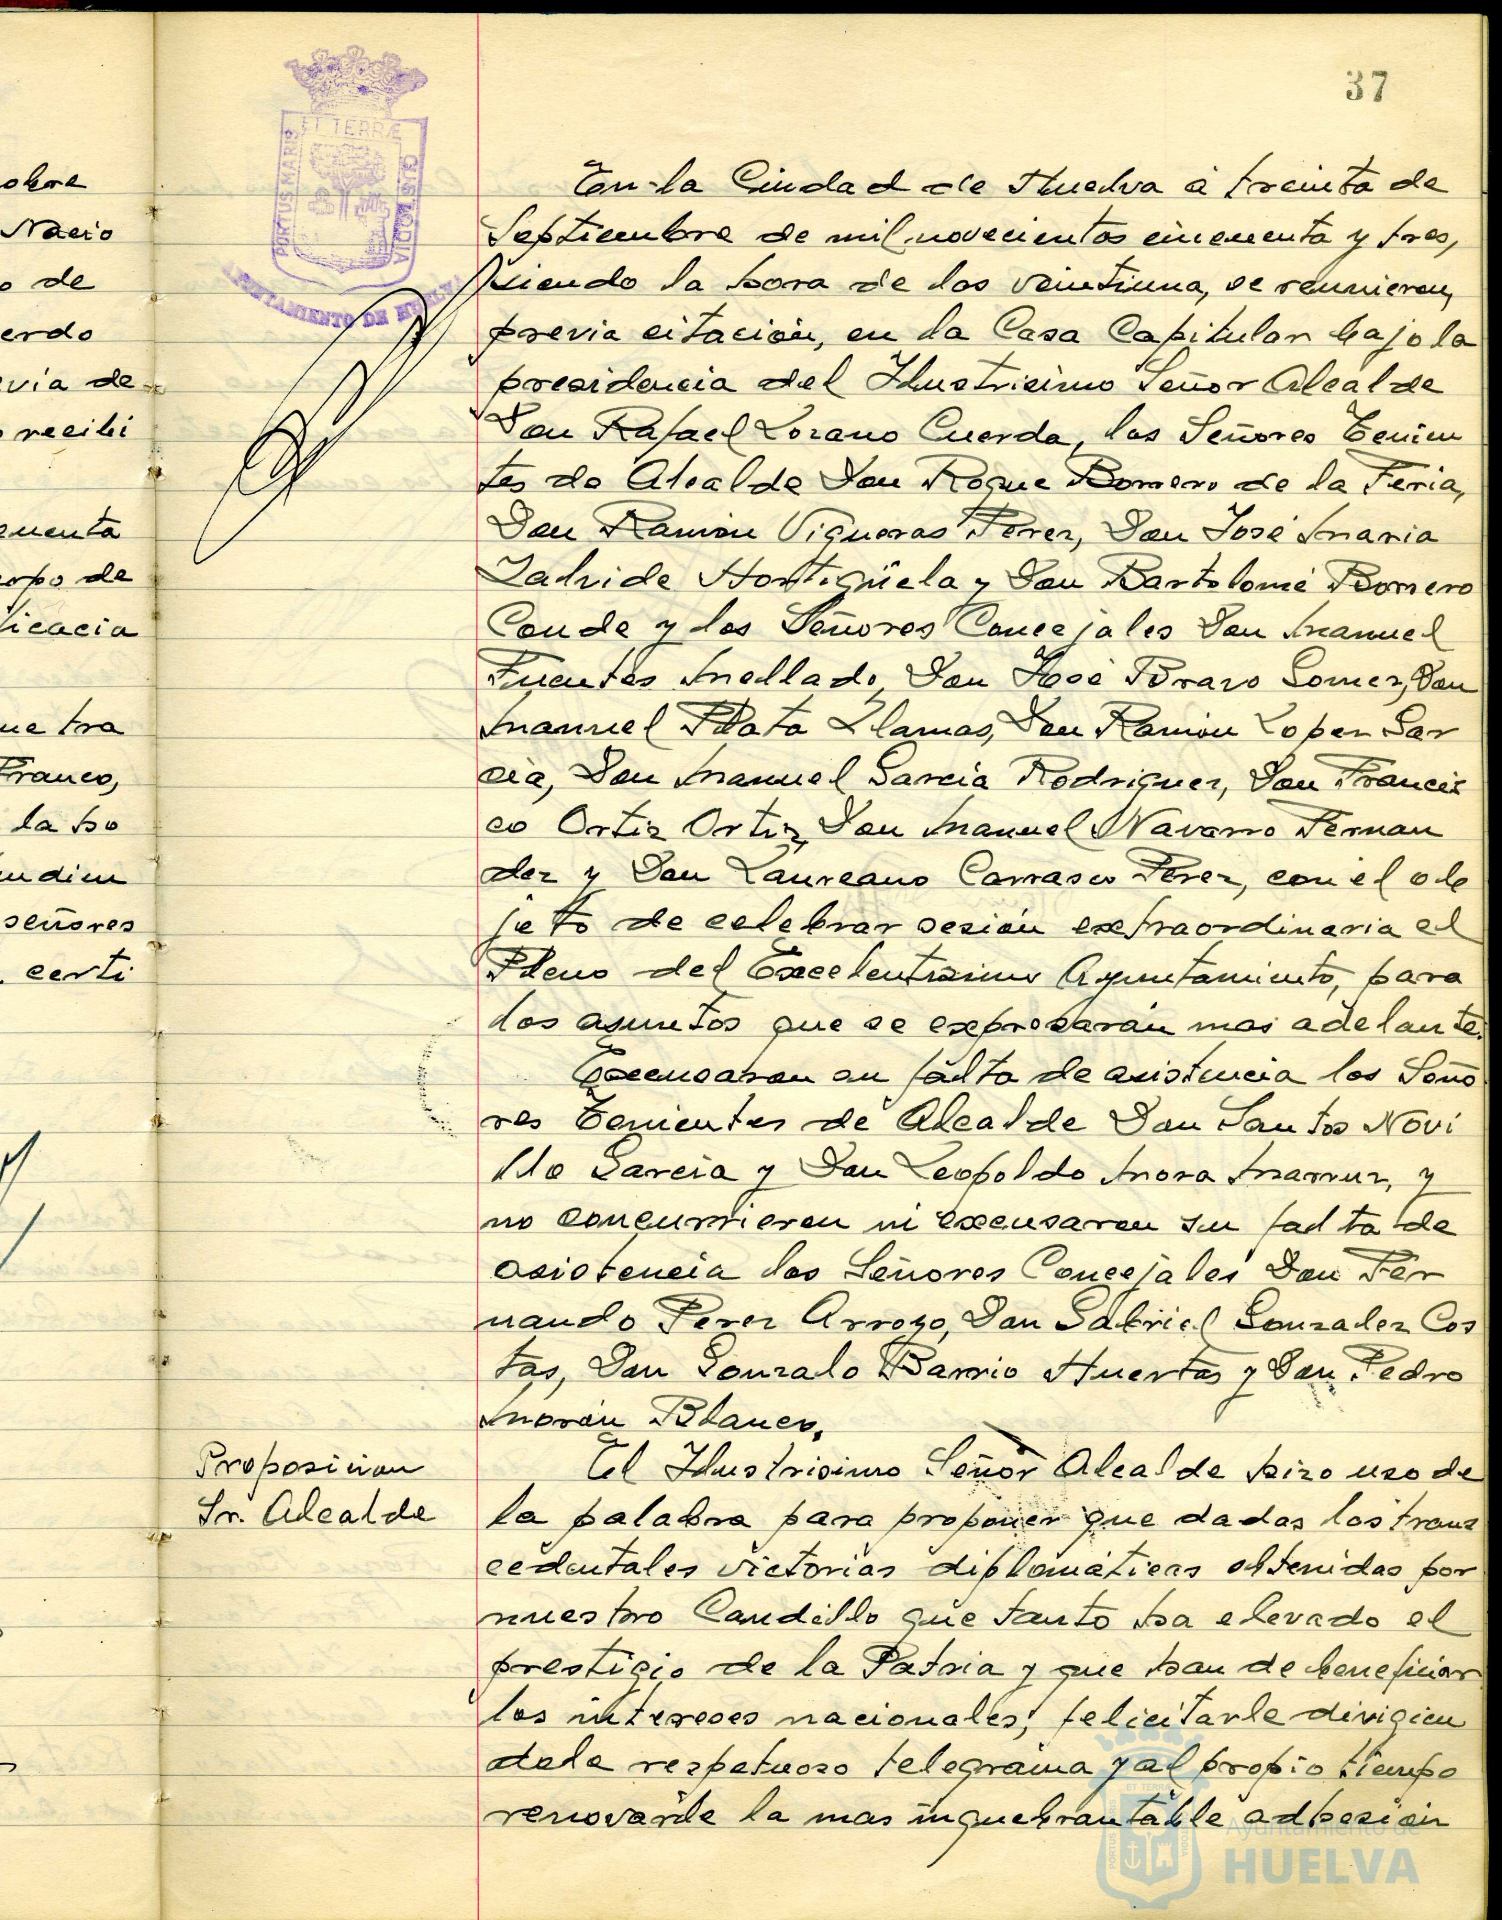 37
ET TERRÆ
PORTUS MARIS
CUSTODIA
AYUNTAMIENTO DE HUELVA
obre
Nacio
o de
erdo
evia de
recibi
cuenta
erpo de
ficacia
ue tra
Franco,
la ho
endien
señores
certi
En la Ciudad de Huelva á treinta de
Septiembre de mil novecientos cincuenta y tres,
siendo la hora de las veintiuna, se reunieron,
previa citación, en la Casa Capitular bajo la
presidencia del Ilustrisimo Señor Alcalde
Don Rafael Lozano Cuerda, los Señores Tenien
tes de Alcalde Don Roque Borrero de la Feria,
Don Ramón Vigueras Perez, Don José Maria
Zalvide Hortigüela y Don Bartolomé Borrero
Conde y los Señores Concejales Don Manuel
Fuentes Mellado, Don José Bravo Gomez, Don
Manuel Plata Llamas, Don Ramón Lopez Gar
cia, Don Manuel Garcia Rodriguez, Don Francis
co Ortiz Ortiz, Don Manuel Navarro Fernan
dez y Don Laureano Carrasco Perez, con el ob
jeto de celebrar sesión extraordinaria el
Pleno del Excelentisimo Ayuntamiento, para
los asuntos que se expresarán mas adelante.
Excusaron su falta de asistencia los Seño
res Tenientes de Alcalde Don Santos Novi
llo Garcia y Don Leopoldo Mora Marruz, y
no concurrieron ni excusaron su falta de
asistencia los Señores Concejales Don Fer
nando Perez Arroyo, Don Gabriel Gonzalez Cos
tas, Don Gonzalo Barrio Huertas y Don Pedro
Morón Blanco.
Proposicion
Sr. Alcalde
El Ilustrisimo Señor Alcalde hizo uso de
la palabra para proponer que dadas las trans
cedentales victorias diplomáticas obtenidas por
nuestro Caudillo que tanto ha elevado el
prestigio de la Patria y que han de beneficiar
los intereses nacionales, felicitarle dirigien
dole respetuoso telegrama y al propio tiempo
renovarle la mas inquebrantable adhesión
Ayuntamiento de
HUELVA